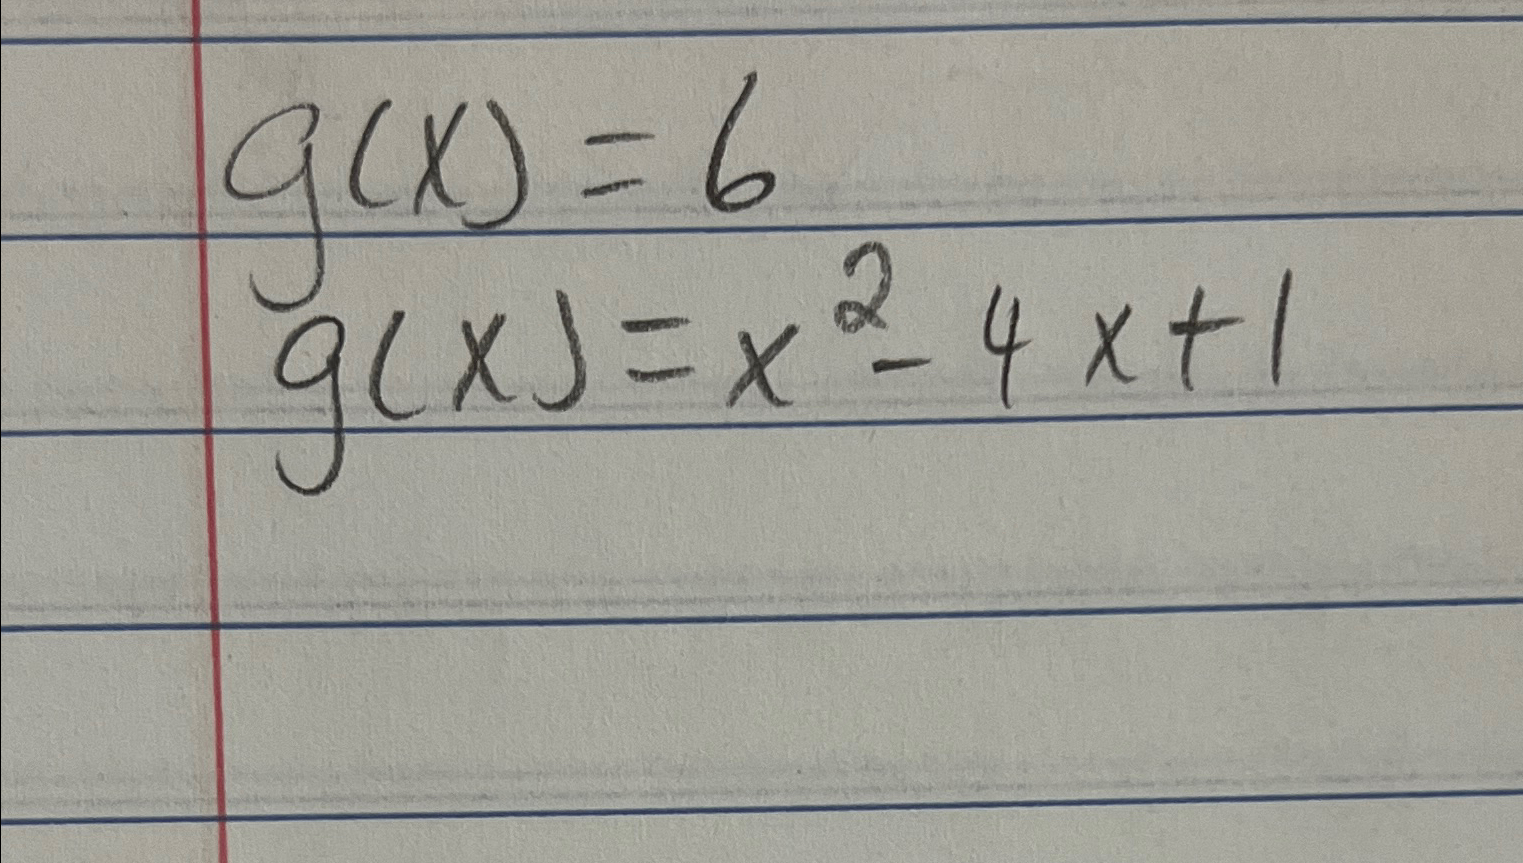 g(x) = 6
g(x) = x² - 4x + 1